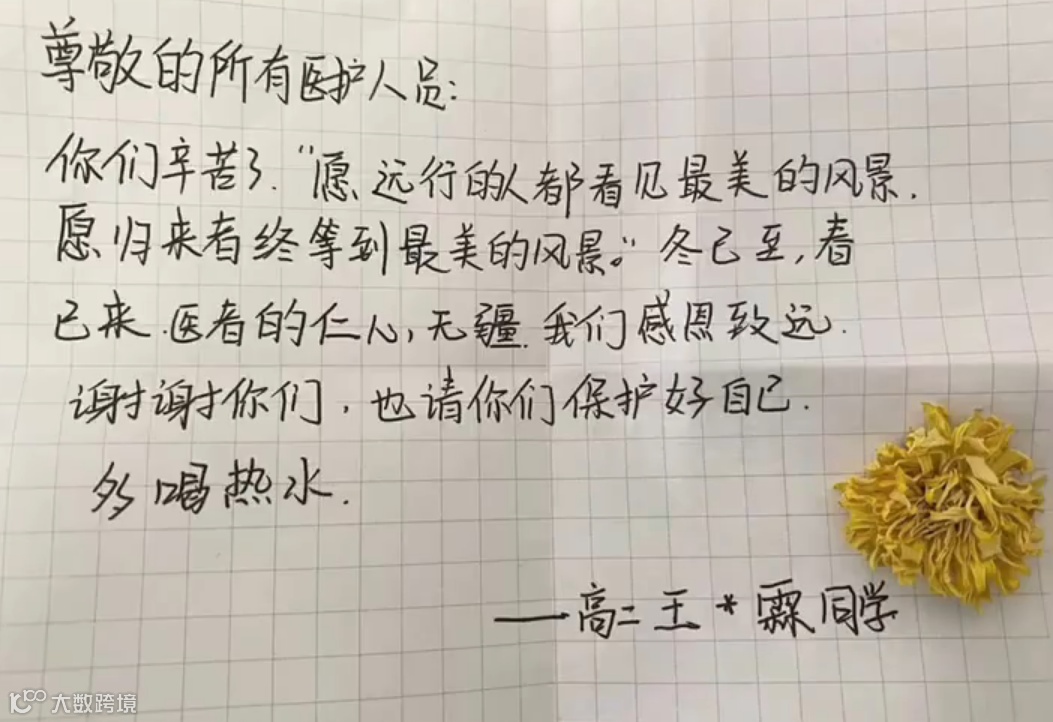 尊敬的所有医护人员:
你们辛苦了."愿远行的人都看见最美的风景.
愿归来者终等到最美的风景。"冬已至,春
已来.医者的仁心,无疆.我们感恩致远.
谢谢你们,也请你们保护好自己.
多喝热水.
——高二王*霖同学
大数跨境